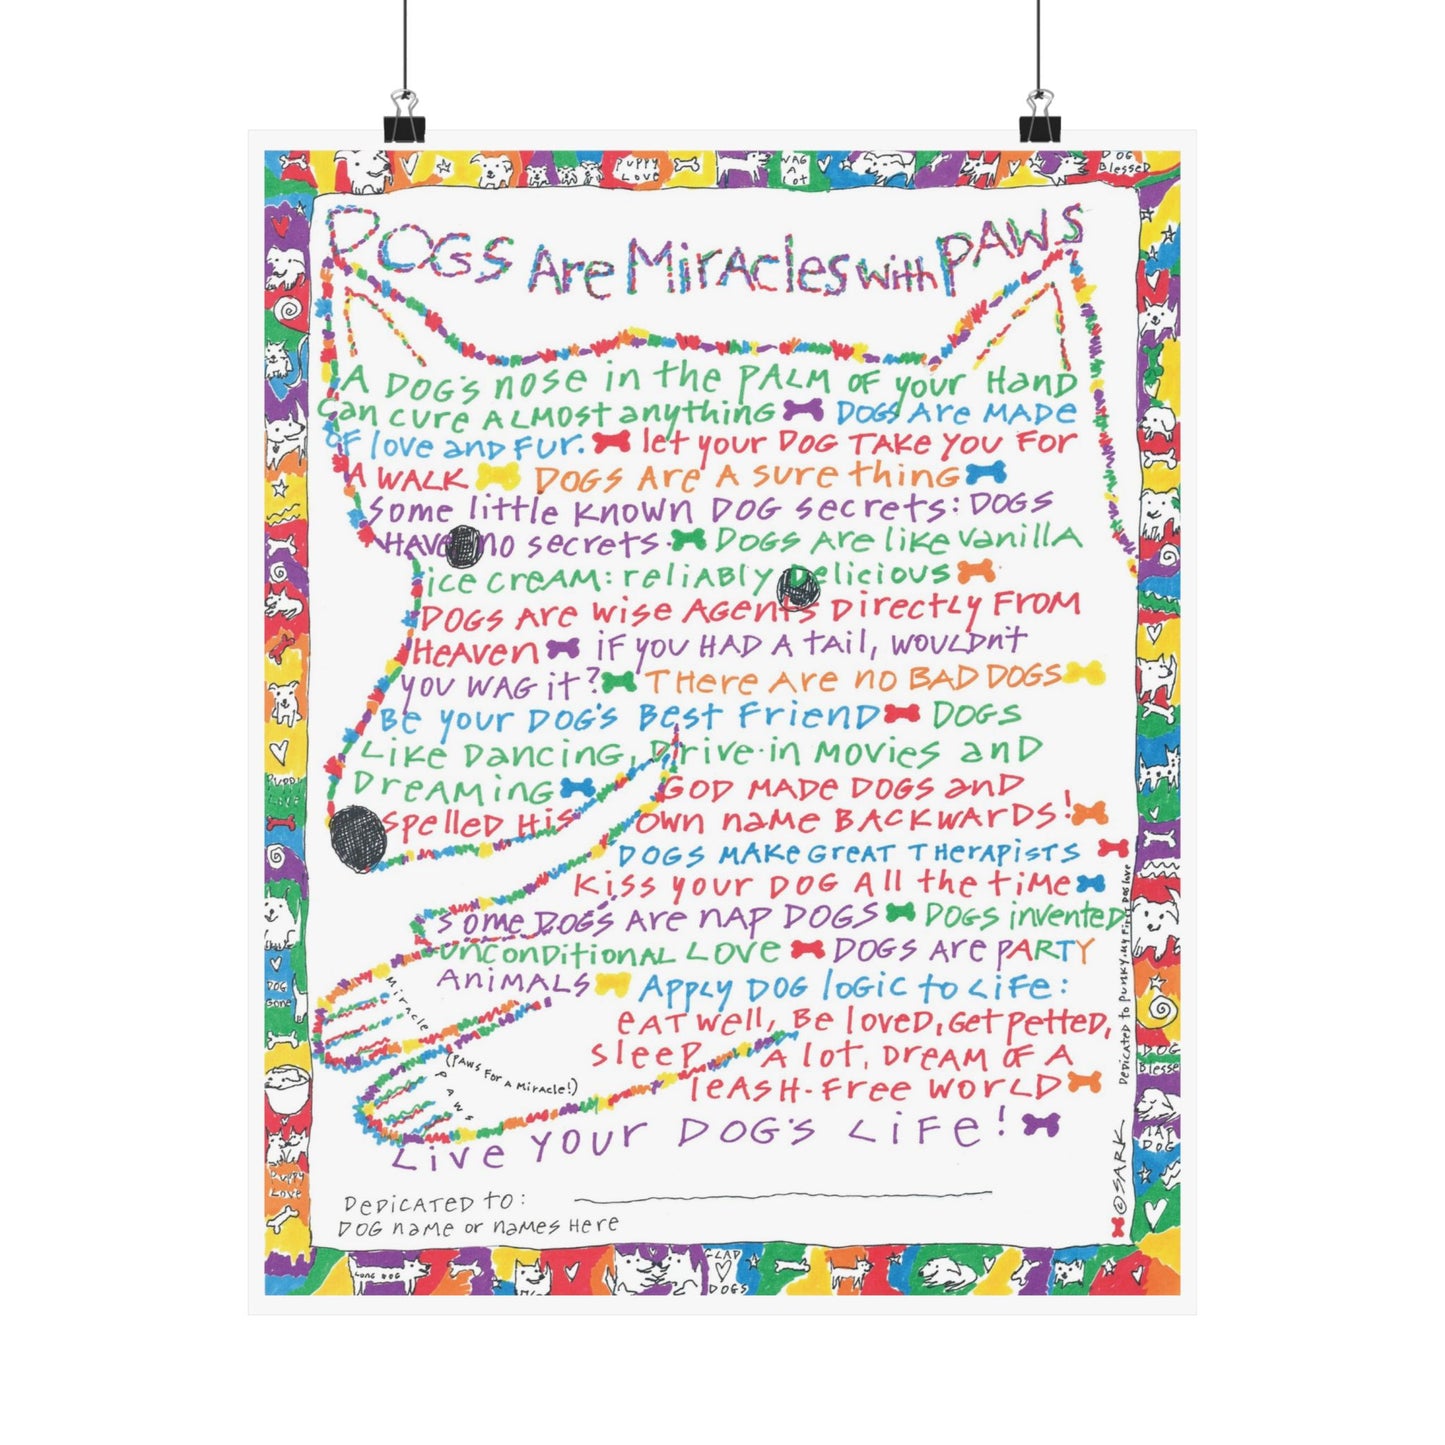 DOGS Are Miracles with PAWS
A DOG'S nose in the PALM OF your HAND
can cure ALMOST anything DOGS Are MADE
OF love and FUR. let your DOG TAKE YOU FOR
A WALK DOGS Are A sure thing
some little known DOG secrets: DOGS
HAVE no secrets. DOGS Are like vanilla
ice cream: reliABly Delicious
DOGS Are wise AGents Directly From
Heaven iF you HAD A tail, wouldn't
you WAG it? THere Are no BAD DOGS
Be your DOG'S Best Friend DOGS
Like Dancing, Drive-in movies and
Dreaming GOD MADE DOGS and
spelled His own name BACKWARDS!
DOGS MAKE Great THerapists
Kiss your DOG All the time
some DOGS Are nap DOGS DOGS invented
unconditional Love DOGS Are PARTY
Animals Apply DOG logic to Life:
eat well, Be loved, Get petted,
sleep A lot, Dream OF A
leash-Free world
Live your DOG'S Life!
Miracle
(PAWS For A Miracle!)
PAWS
Dedicated to: 
DOG name or names Here
Dedicated to Punky. my First DOG love
©SARK
PUPPY LOVE
WAG A LOT
DOG Blessed
PUPPY LOVE
DOG Gone
PUPPY LOVE
DOG Blessed
NAP DOG
LONG DOG
GLAD DOGS